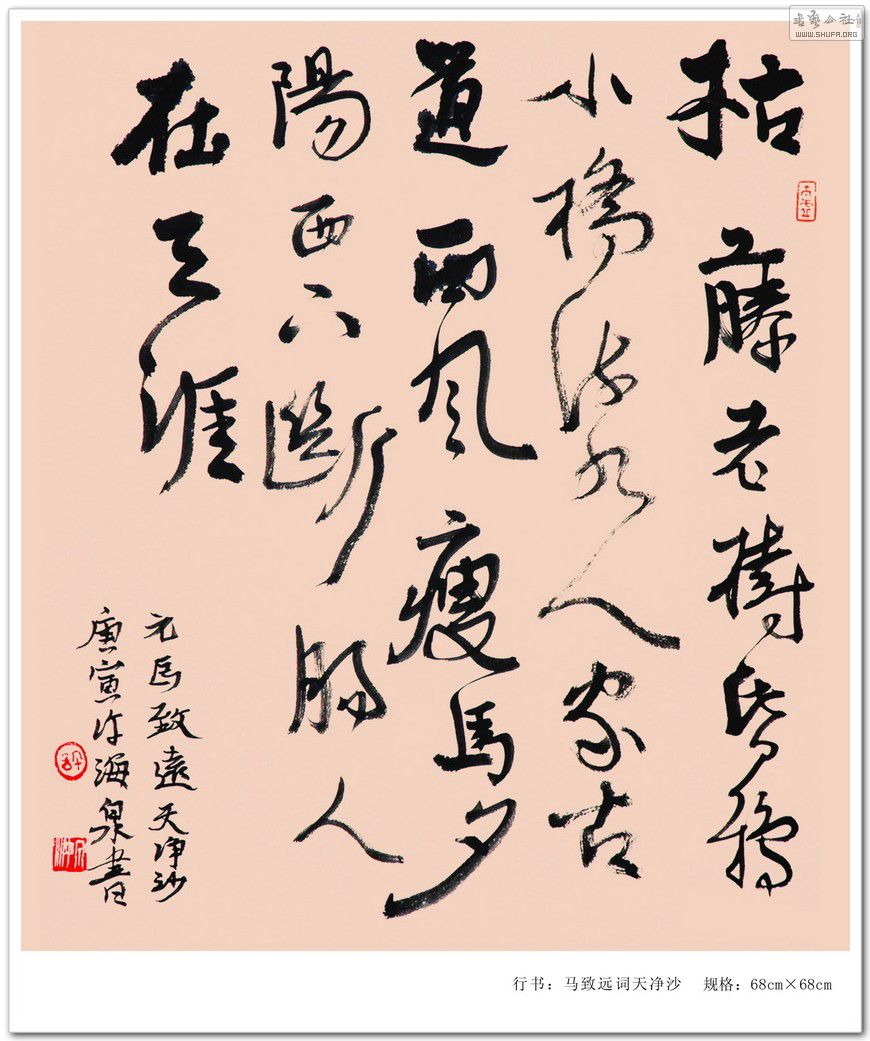 枯藤老樹昏鴉
小橋流水人家古
道西風瘦馬夕
陽西下斷腸人
在天涯
元馬致遠天净沙
庚寅许海泉書
行书：马致远词天净沙 规格：68cm×68cm
書藝公社
WWW.SHUFA.ORG